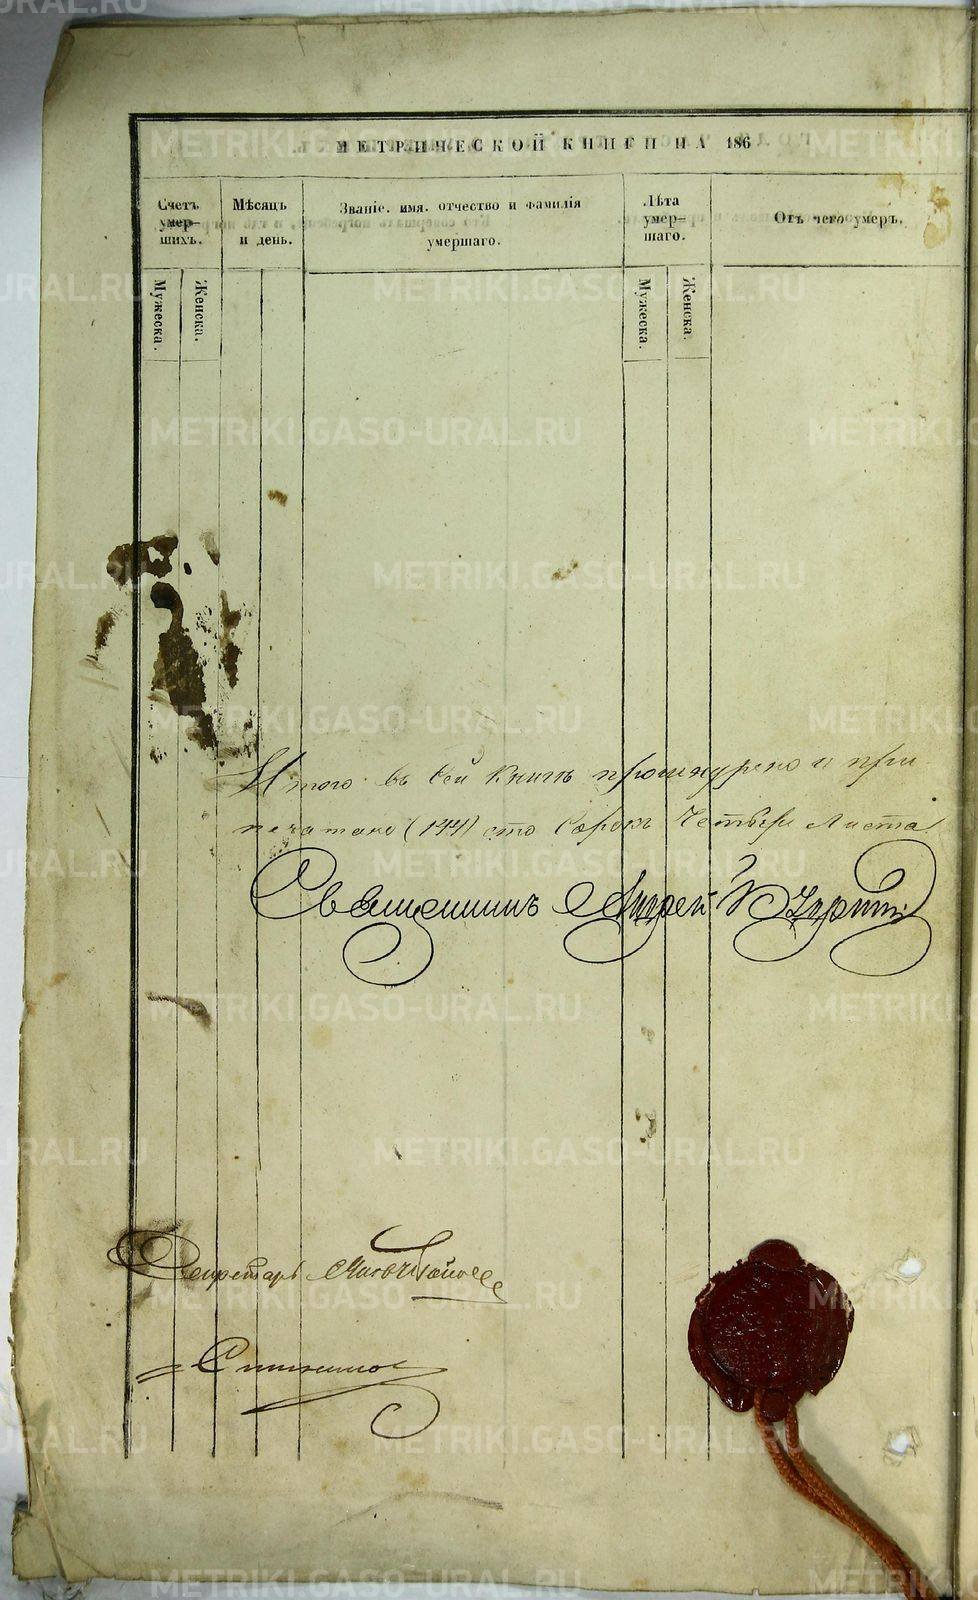 МЕТРИЧЕСКОЙ КНИГИ НА 186
Счетъ умер-шихъ.
Мѣсяцъ и день.
Званіе. имя. отчество и фамилія умершаго.
Лѣта умер-шаго.
Отъ чего умеръ.
Мужеска.
Женска.
Мужеска.
Женска.
Итого въ сей книгѣ прошнуровано и при
печатано (144) сто сорокъ четыре листа
Священникъ Андрей
Секретарь
METRIKI.GASO-URAL.RU